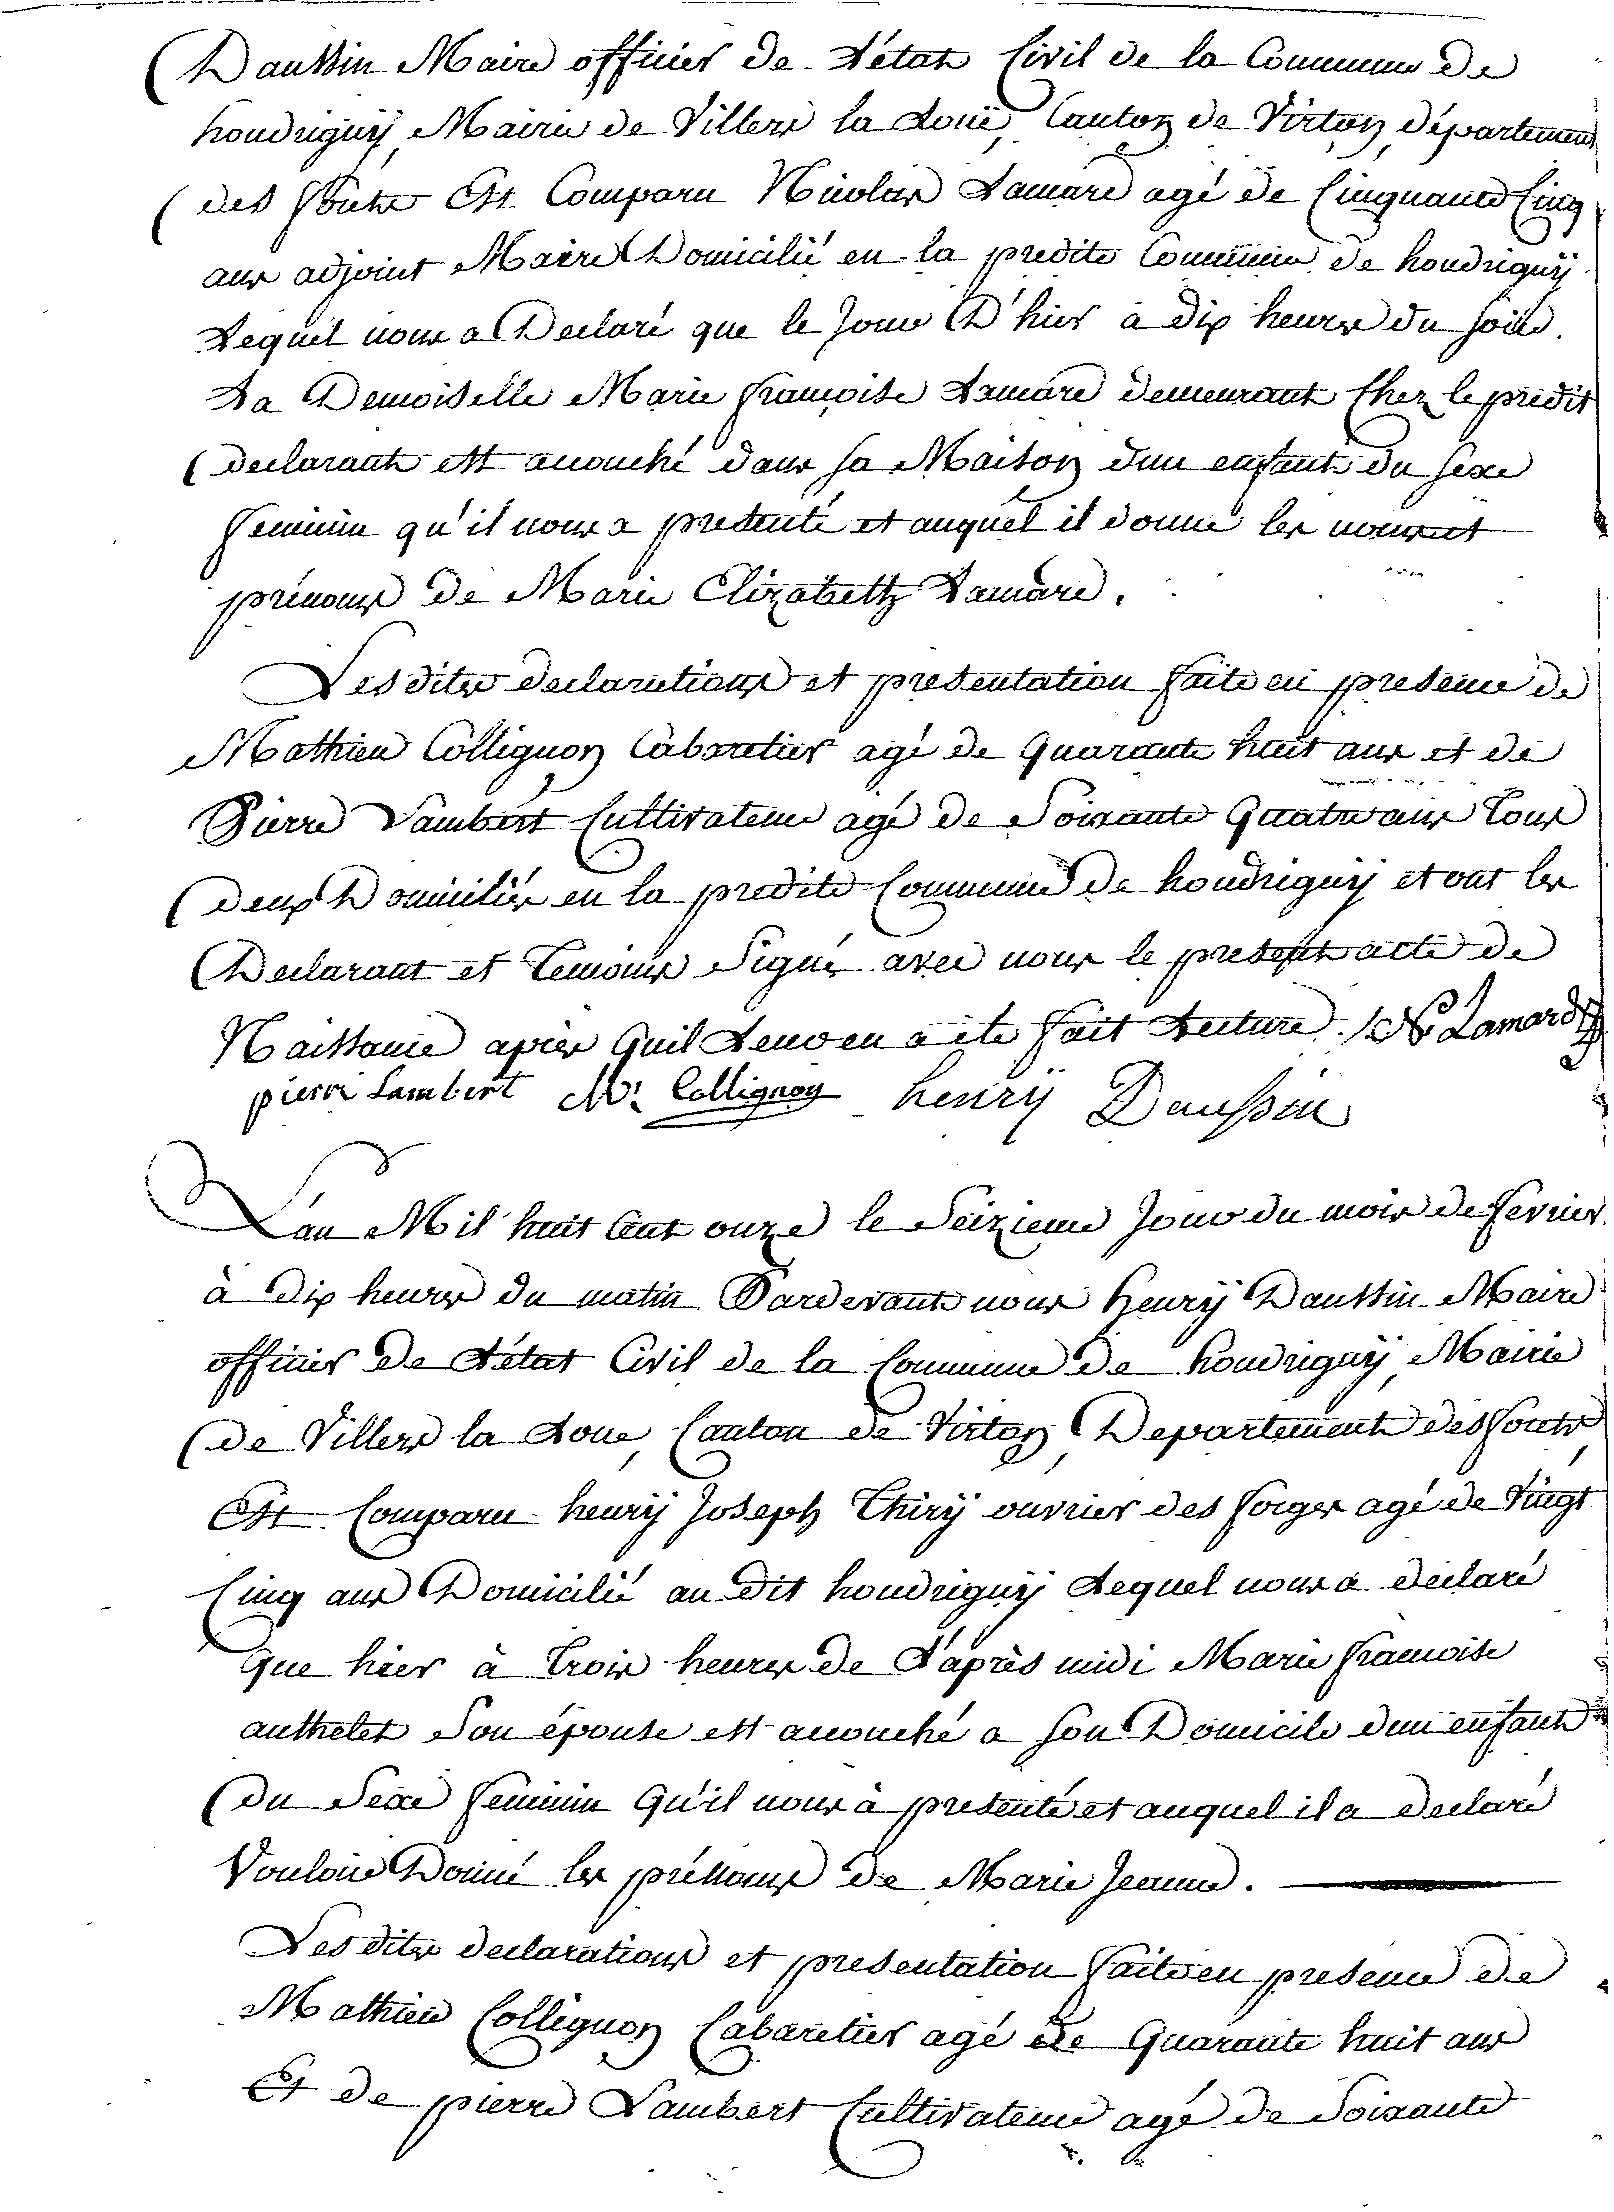 Daussin Maire officier de L'état Civil de la Commune de
houdrigny, Mairie de Villers la Loüe, Canton de Virton, département
des forêts Est Comparu Nicolas Lamare agé de Cinquante Cinq
ans adjoint Maire Domicilié en la predite Commune de houdrigny
Lequel nous a Declaré que le Jour D'hier à dix heures du soire.
La Demoiselle Marie françoise Lamare demeurant Chez le predit
declarant est accouché dans sa Maison d'un enfant du sexe
feminin qu'il nous a presenté et auquel il donne les noms et
prénoms de Marie Elizabeth Lamare.
Les dites declarations et presentation faite en presence de
Mathieu Collignon Cabaretier agé de quarante huit ans et de
Pierre Lambert Cultivateur agé de Soixante Quatre ans Tous
deux Domiciliés en la predite Commune de houdrigny et ont les
Declarant et Temoins Signés avec nous le present acte de
Naissance apres quil Leur en a ete fait Lecture. N Lamare
pierre Lambert M. Collignon henrÿ Daussin
L'an Mil huit Cent onze le Seizieme Jour du mois de fevrier
à dix heures du matin Pardevant nous Henrÿ Daussin Maire
officier de L'état Civil de la Commune de houdrigny, Mairie
de Villers la Loue, Canton de Virton, Departement des forets,
Est Comparu henrÿ Joseph Thirÿ ouvrier des forges agé de Vingt
Cinq ans Domicilié au dit houdrigny Lequel nous a declaré
que hier à trois heures de L'après midi Marie françoise
authelet Son épouse est accouché a son Domicile d'un enfant
du Sexe feminin Qu'il nous à presenté et auquel il a declaré
Vouloir Donné les prénoms de Marie Jeanne.
Les dites declarations et presentation faite en presence de
Mathieu Collignon Cabaretier agé de Quarante huit ans
Et de pierre Lambert Cultivateur agé de Soixante